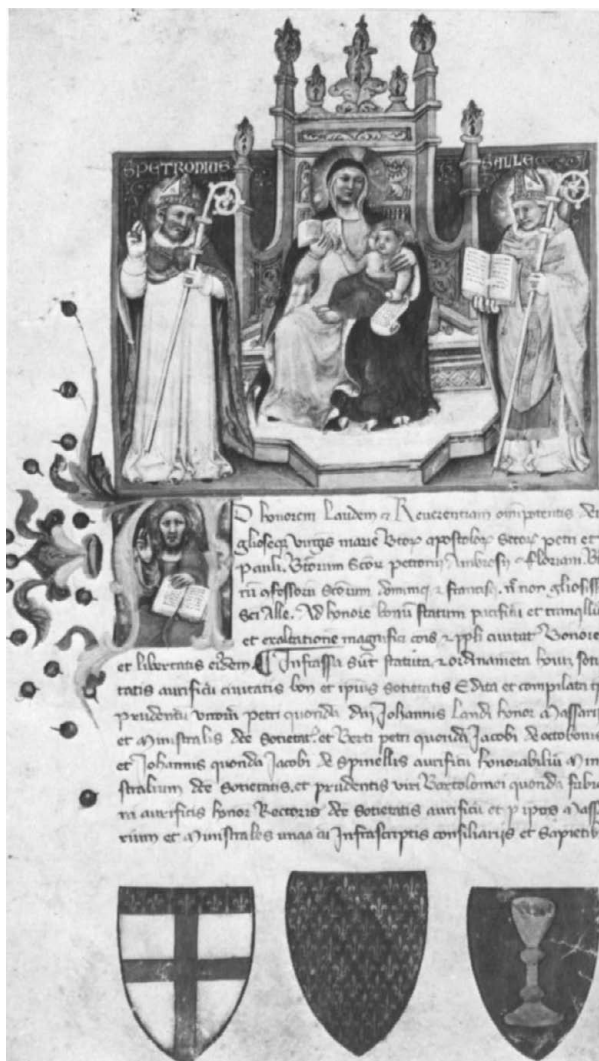 S PETRONIUS
S ALLE
D honorem Laudem & Reverentiam omnipotentis dei
gliose virginis marie btor apostolor sctor petri et
pauli. btorum Scor petronii Ambrosij & floriani.
confessor Scorum dominici & francisci. nō non glosiss
Sci Alle. Ad honore bonū statum pacificū et tranquillū
et exaltatione magnifici cōis & ppli civitat Bononie
et libertatis eiusdem. Infrascpta sūt statuta & ordinamēta
tatis aurificū civitatis bon et ipius societatis Edita et compilata
prudentū virorū petri quondā dnj Johannis Landi honor Massarij
et Ministralis dce societat. et Berti petri quondā Jacobi
et Johannis quondā Jacobi de Spinellis aurificū honorabiliū Min
stralium dce societatis, et prudentis viri Bartolomei quondā
aurificis honor Rectoris dce societatis aurificū et p ipsos Massa
rium et Ministrales unaa cū Infrascriptis consiliarijs et Sapietib